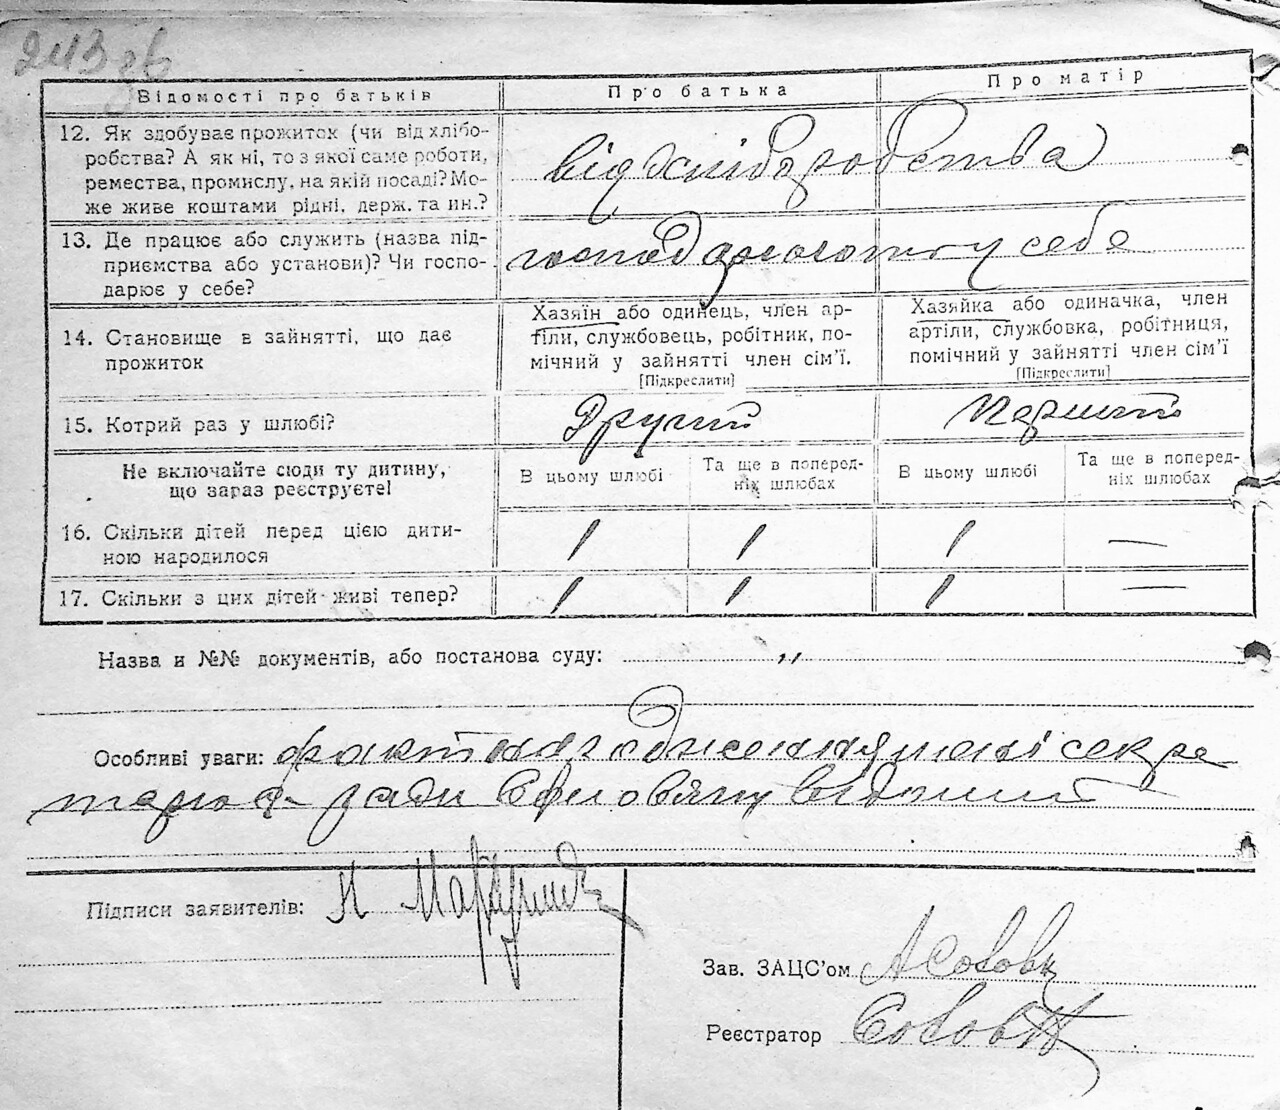 243 зв
Відомості про батьків
Про батька
Про матір
12. Як здобуває прожиток (чи від хлібо-
робства? А як ні, то з якої саме роботи,
ремества, промислу, на якій посаді? Мо-
же живе коштами рідні, держ. та ин.?
від хліборобства
13. Де працює або служить (назва під-
приємства або установи)? Чи госпо-
дарює у себе?
у себе
14. Становище в зайнятті, що дає
прожиток
Хазяїн або одинець, член ар-
тіли, службовець, робітник, по-
мічний у зайнятті член сім'ї.
[Підкреслити]
Хазяйка або одиначка, член
артіли, службовка, робітниця,
помічний у зайнятті член сім'ї
[Підкреслити]
15. Котрий раз у шлюбі?
Другий
Перший
Не включайте сюди ту дитину,
що зараз реєструєте!
В цьому шлюбі
Та ще в поперед-
ніх шлюбах
В цьому шлюбі
Та ще в поперед-
ніх шлюбах
16. Скільки дітей перед цією дити-
ною народилося
1 1 1 —
17. Скільки з цих дітей живі тепер?
1 1 1 —
Назва и №№ документів, або постанова суду: „
Особливі уваги: факт народження мені секре
тарю ради відомий
Підписи заявителів:
Зав. ЗАЦС'ом
Реєстратор